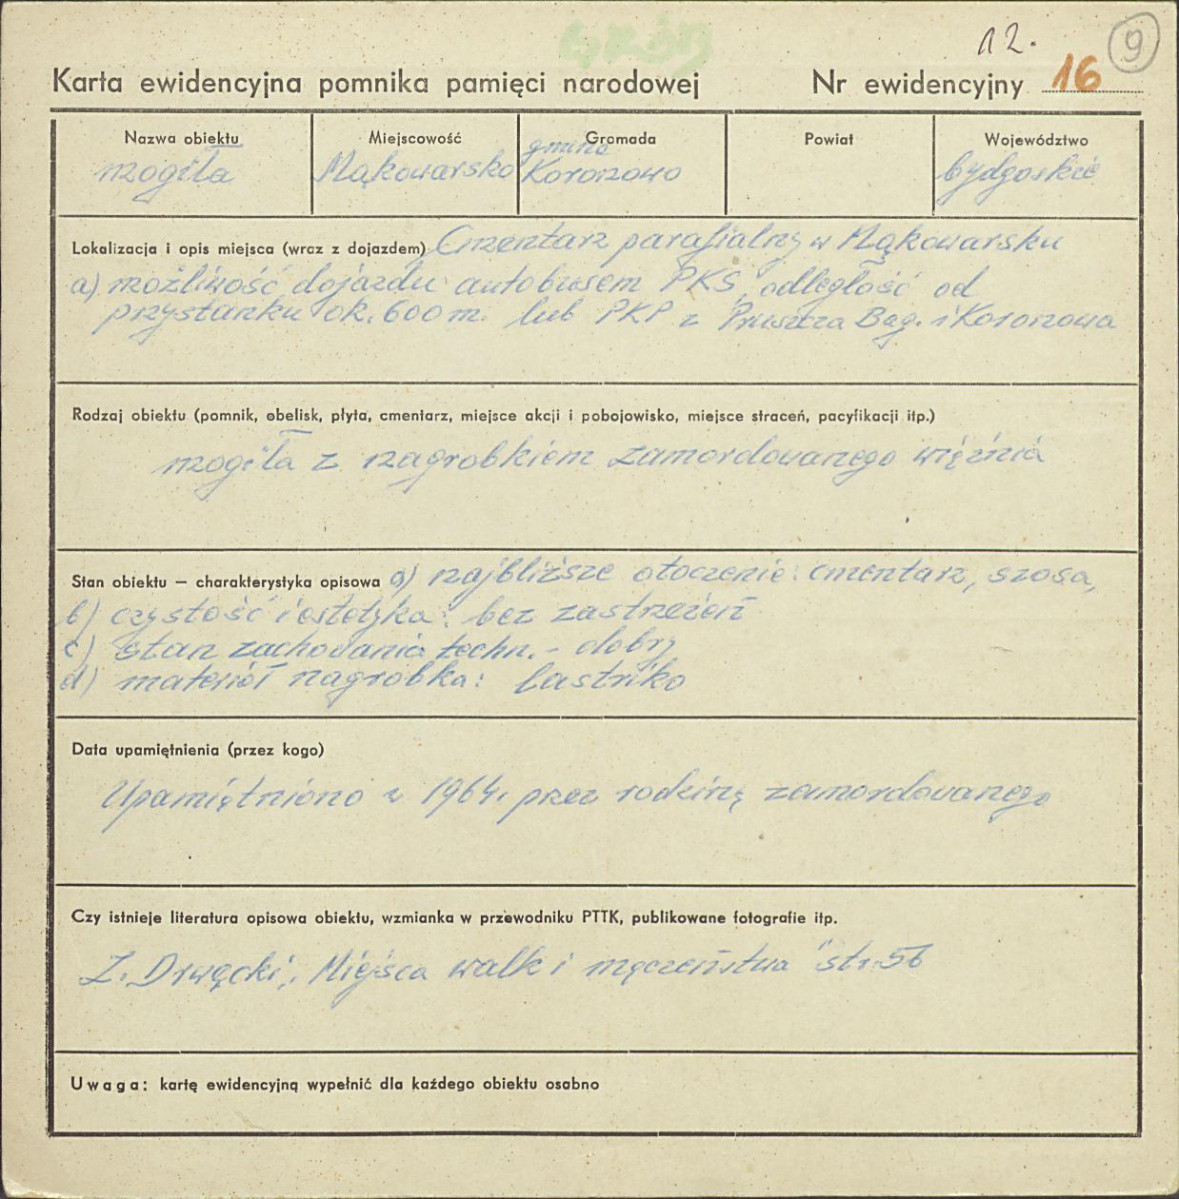 12. 9
Karta ewidencyjna pomnika pamięci narodowej Nr ewidencyjny 16
Nazwa obiektu Miejscowość Gromada Powiat Województwo
gmina
mogiła Mąkowarsko Koronowo bydgoskie
Lokalizacja i opis miejsca (wraz z dojazdem) Cmentarz parafialny w Mąkowarsku
a) możliwość dojazdu autobusem PKS, odległość od
przystanku ok. 600 m. lub PKP z Pruszcza Bag. i Koronowa
Rodzaj obiektu (pomnik, obelisk, płyta, cmentarz, miejsce akcji i pobojowisko, miejsce straceń, pacyfikacji itp.)
mogiła z nagrobkiem zamordowanego więźnia
Stan obiektu — charakterystyka opisowa a) najbliższe otoczenie: cmentarz, szosa,
b) czystość i estetyka: bez zastrzeżeń
c) stan zachowania techn. - dobry
d) materiał nagrobka: lastriko
Data upamiętnienia (przez kogo)
Upamiętniono w 1964r przez rodzinę zamordowanego
Czy istnieje literatura opisowa obiektu, wzmianka w przewodniku PTTK, publikowane fotografie itp.
Z. Drwęcki, "Miejsca walk i męczeństwa" str. 56
Uwaga: kartę ewidencyjną wypełnić dla każdego obiektu osobno